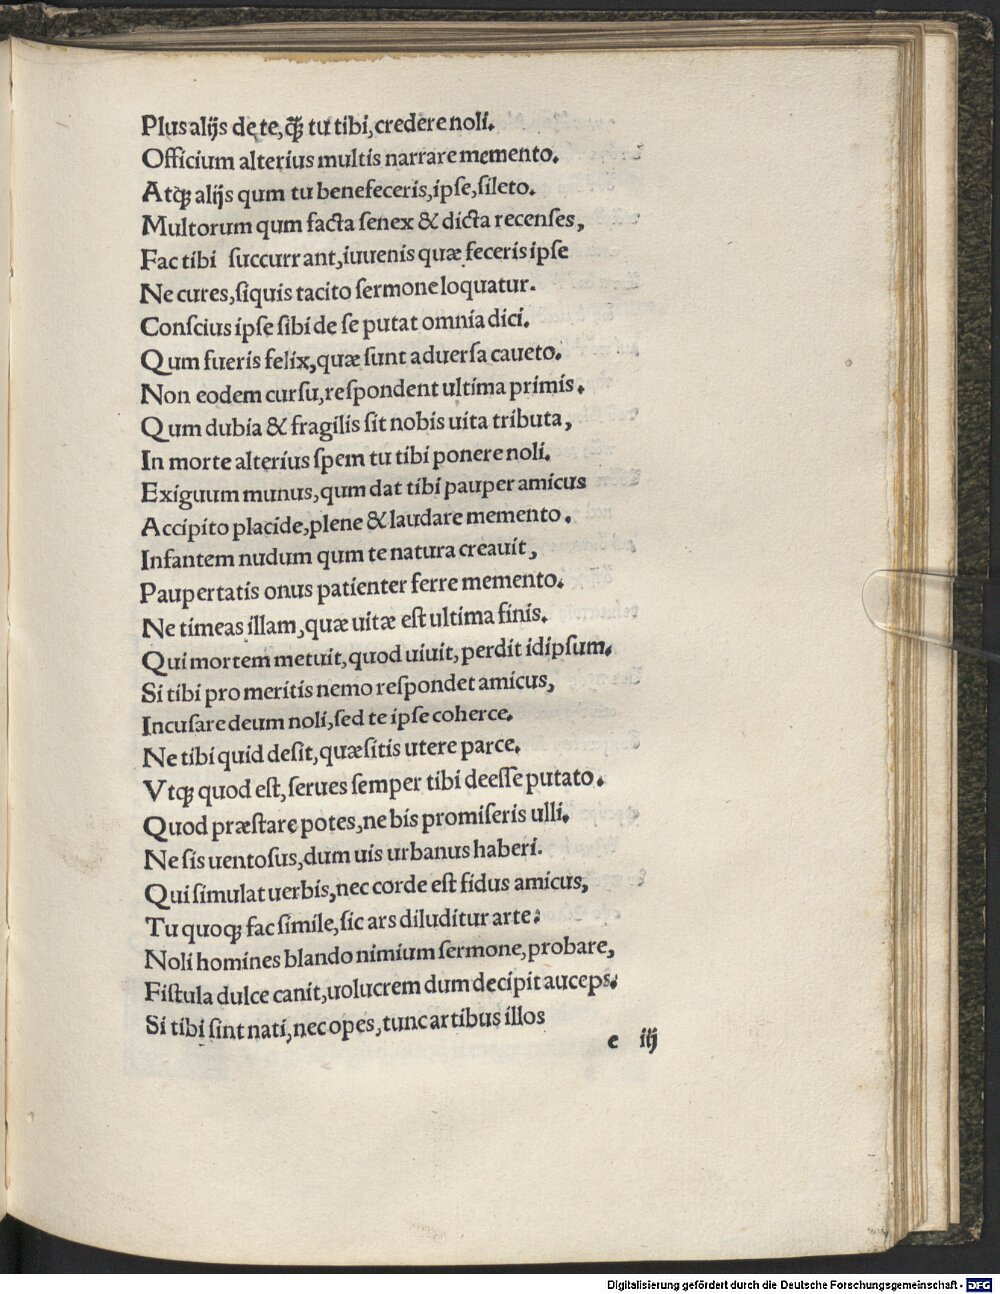 Plus alijs de te, ꝙ̃ tu tibi, credere noli.
Officium alterius multis narrare memento.
Atqꝫ alijs qum tu benefeceris, ipse, sileto.
Multorum qum facta senex & dicta recenses,
Fac tibi succurrant, iuuenis quæ feceris ipse
Ne cures, siquis tacito sermone loquatur.
Conscius ipse sibi de se putat omnia dici.
Qum fueris felix, quæ sunt aduersa caueto.
Non eodem cursu, respondent ultima primis.
Qum dubia & fragilis sit nobis uita tributa,
In morte alterius spem tu tibi ponere noli.
Exiguum munus, qum dat tibi pauper amicus
Accipito placide, plene & laudare memento.
Infantem nudum qum te natura creauit,
Paupertatis onus patienter ferre memento.
Ne timeas illam, quæ uitæ est ultima finis.
Qui mortem metuit, quod uiuit, perdit idipsum.
Si tibi pro meritis nemo respondet amicus,
Incusare deum noli, sed te ipse coherce.
Ne tibi quid desit, quæsitis utere parce.
Vtqꝫ quod est, serues semper tibi deesse putato.
Quod præstare potes, ne bis promiseris ulli.
Ne sis uentosus, dum uis urbanus haberi.
Qui simulat uerbis, nec corde est fidus amicus,
Tu quoqꝫ fac simile, sic ars diluditur arte:
Noli homines blando nimium sermone, probare,
Fistula dulce canit, uolucrem dum decipit auceps.
Si tibi sint nati, nec opes, tunc artibus illos
e iij
Digitalisierung gefördert durch die Deutsche Forschungsgemeinschaft - DFG